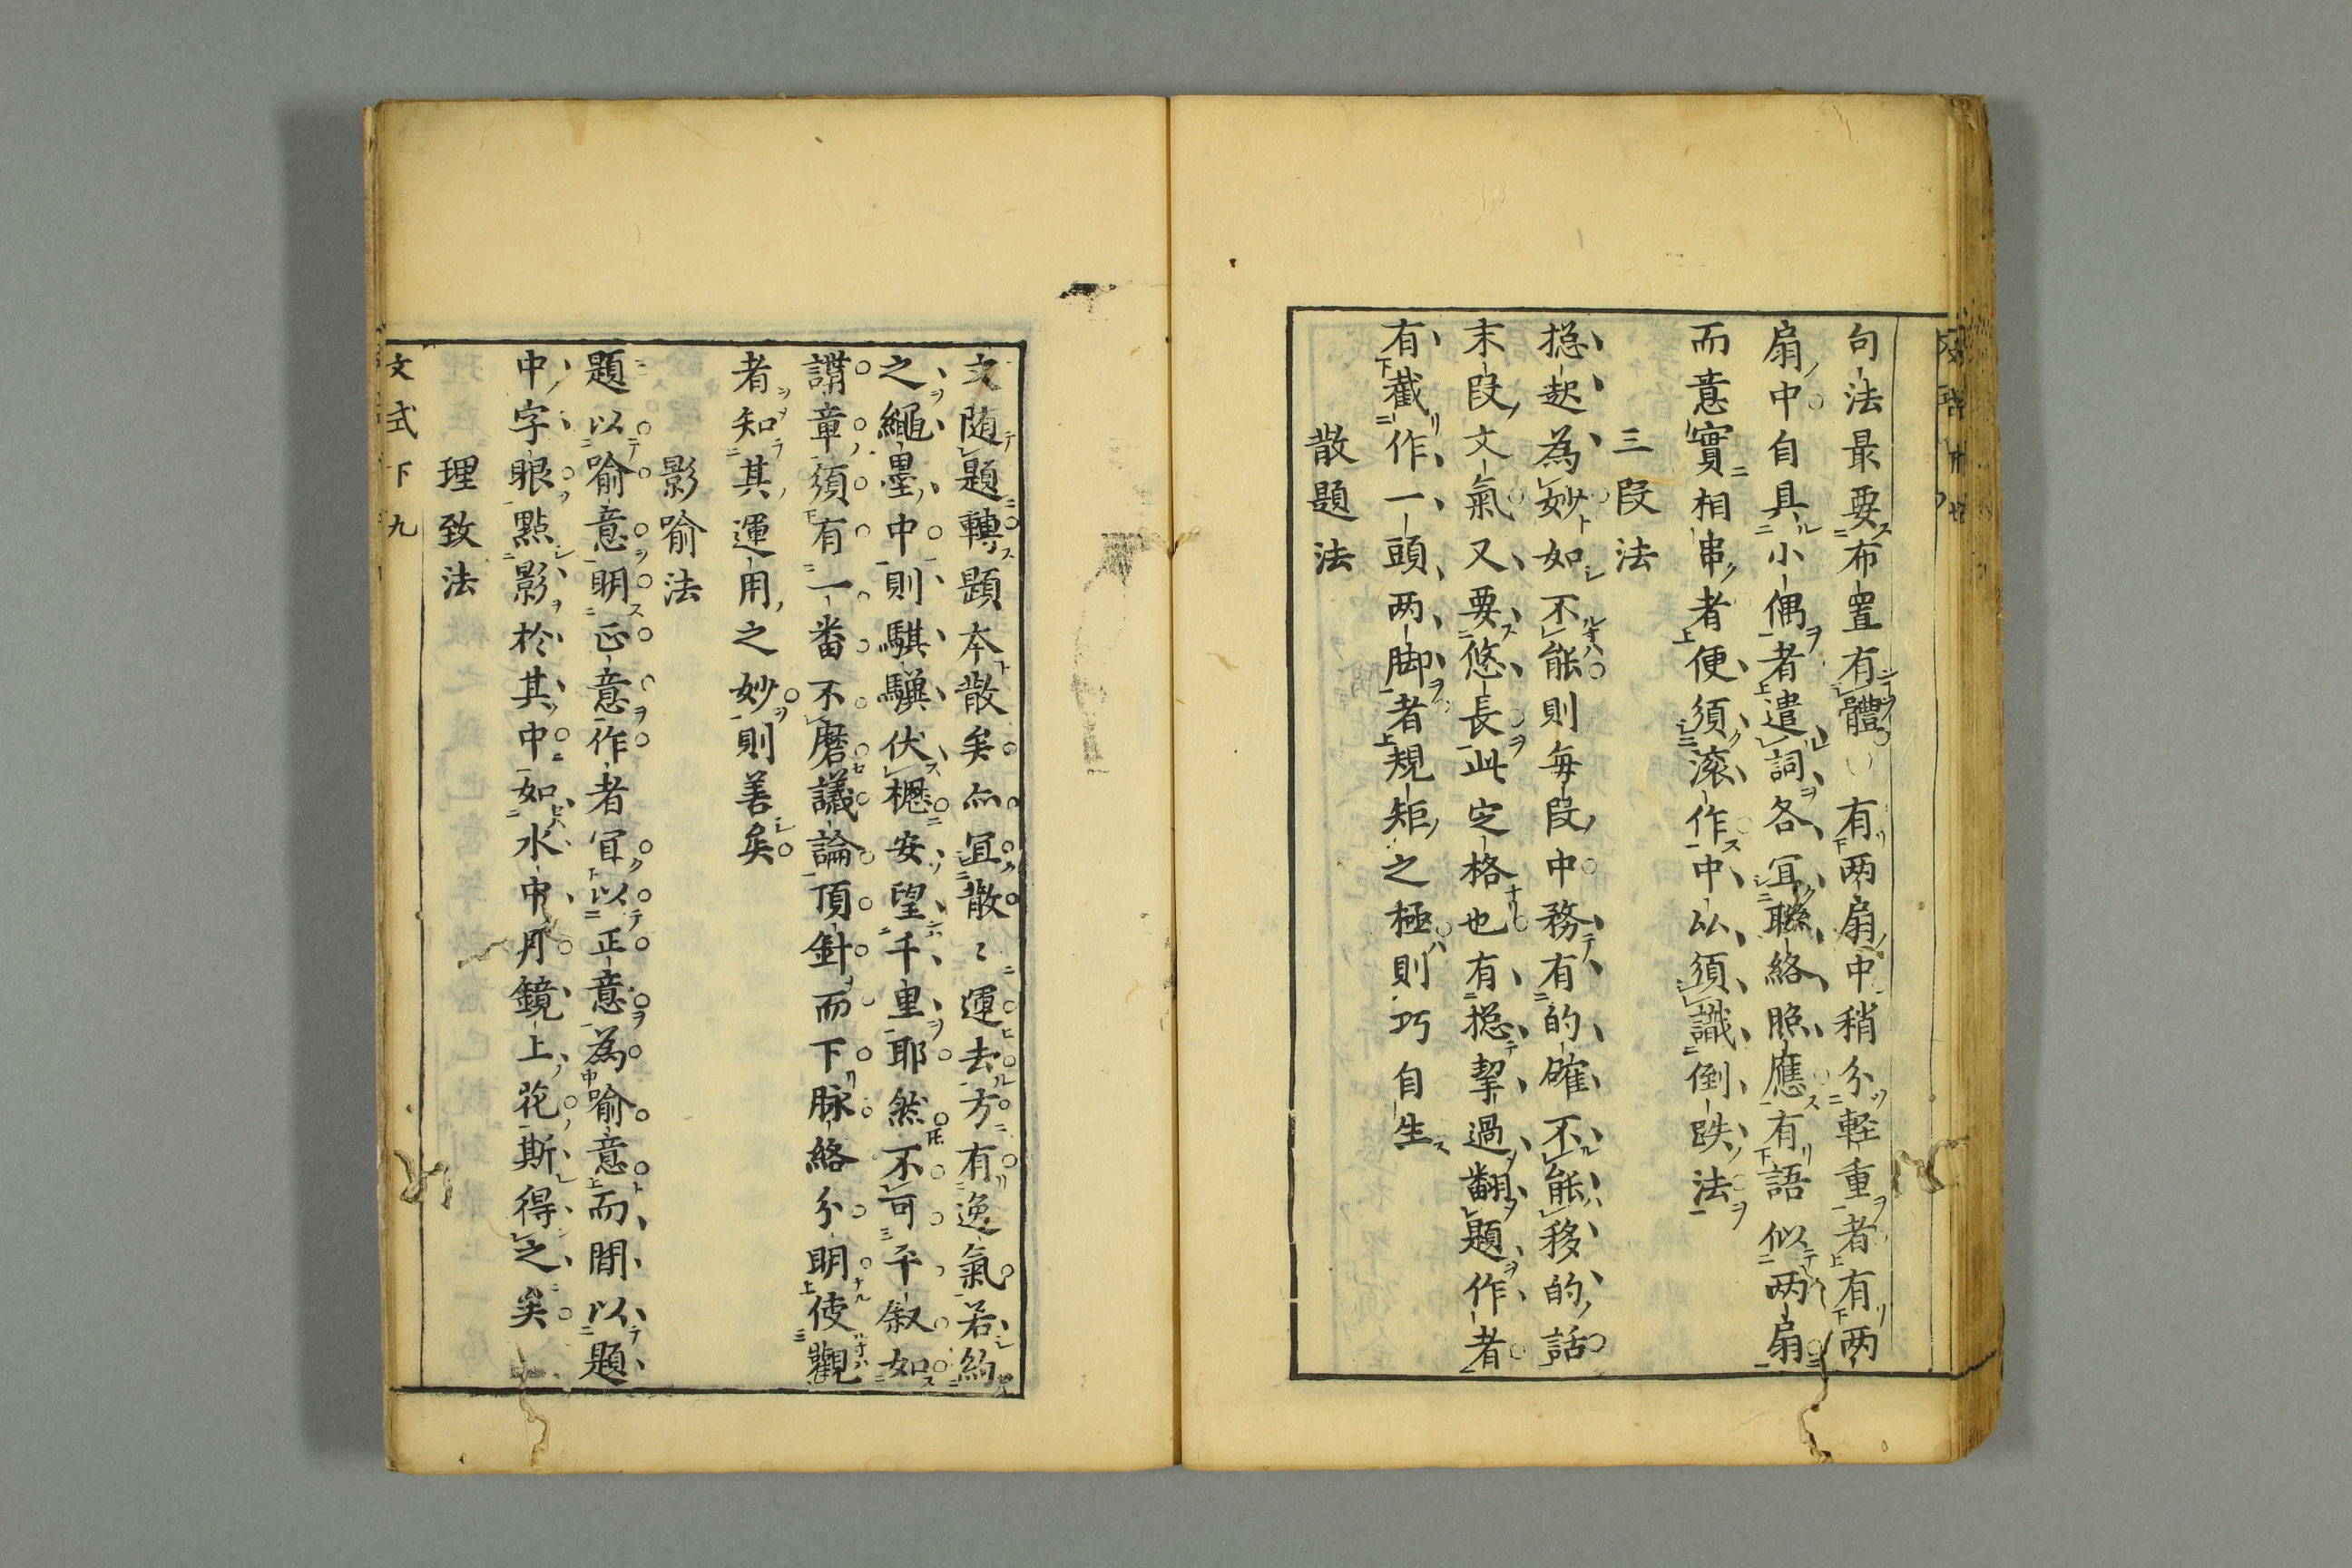 句法最要布置有體有两扇中稍分輕重者有两
扇中自具小偶者遣詞各宜聯絡照應有語似两扇
而意實相串者便須滚作中以須識倒跌法
三段法
揔起為妙如不能則每段中務有的確不能移的話
末段文氣又要悠長此定格也有揔挈過翻題作者
有截作一頭两脚者規矩之極則巧自生
散題法
文随題轉題本散矣亦宜散〻運去方有逸氣若約
之繩墨中則騏驥伏櫪安望千里耶然不可平叙如
講章須有一番不磨議論頂針而下脉絡分明使觀
者知其運用之妙則善矣
影喻法
題以喻意明正意作者宜以正意為喻意而間以題
中字眼點影於其中如水中月鏡上花斯得之矣
理致法
文式下 九